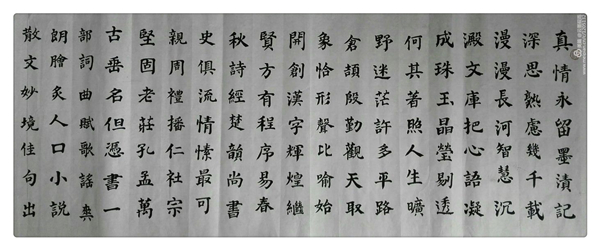 真情永留墨漬記
深思熟慮幾千載
漫漫長河智慧沉
澱文庫把心語凝
成珠玉晶瑩剔透
何其著照人生曠
野迷茫許多平路
倉頡殷勤觀天取
象恰形聲比喻始
開創漢字輝煌繼
賢方有程序易春
秋詩經楚韻尚書
史俱流情愫最可
親周禮播仁社宗
堅固老莊孔孟萬
古垂名但憑書一
部詞曲賦歌謠典
朗膾炙人口小說
散文妙境佳句出